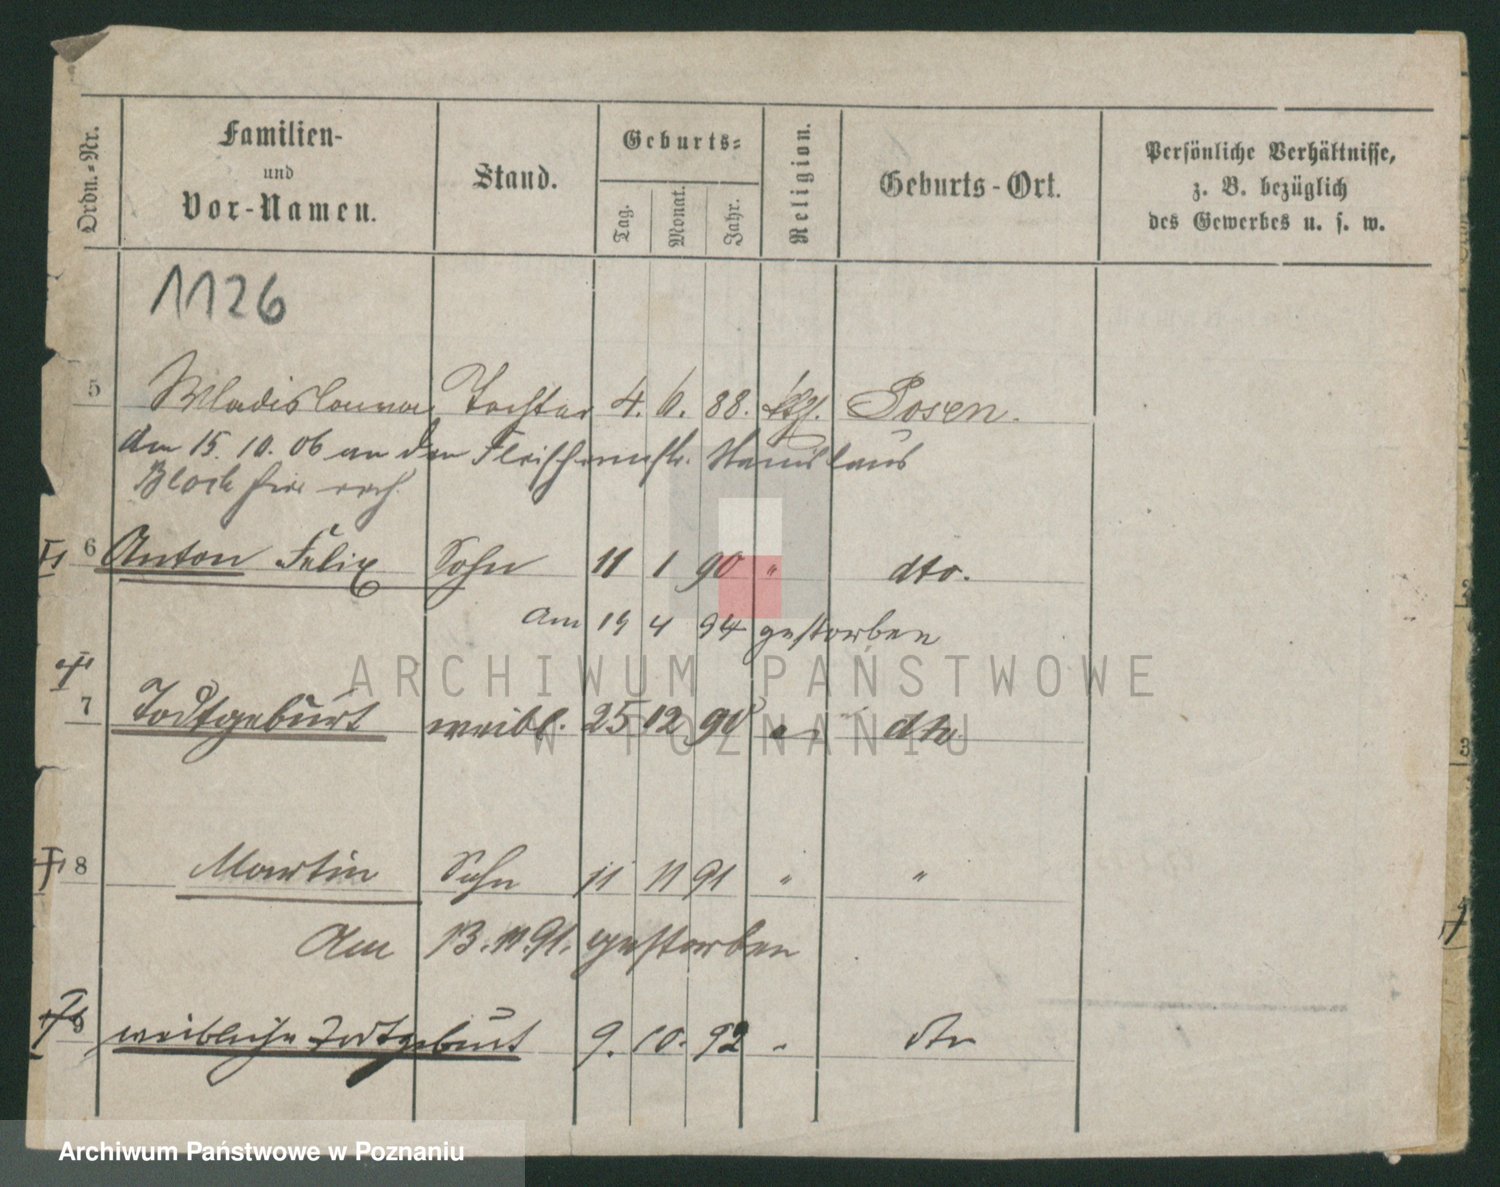 Ordn.-Nr. Familien- und Vor-Namen. Stand. Geburts- Tag. Monat. Jahr. Religion. Geburts-Ort. Persönliche Verhältnisse, z. B. bezüglich des Gewerbes u. s. w.
1126
5 Wladislauva Tochter 4. 6. 88. ktl. Posen.
Am 15. 10. 06 an den Fleischermstr. Stanislaus
Bloch hier verh.
6 Anton Felix Sohn 11 1 90 " dto.
am 19 4 94 gestorben
7 Todtgeburt weibl. 25 12 90 " dto
8 Martin Sohn 11 11 91 " "
Am 13. 11. 91. gestorben
9 weibliche Todtgeburt 9. 10. 92 " dto
ARCHIWUM PAŃSTWOWE
W POZNANIU
Archiwum Państwowe w Poznaniu